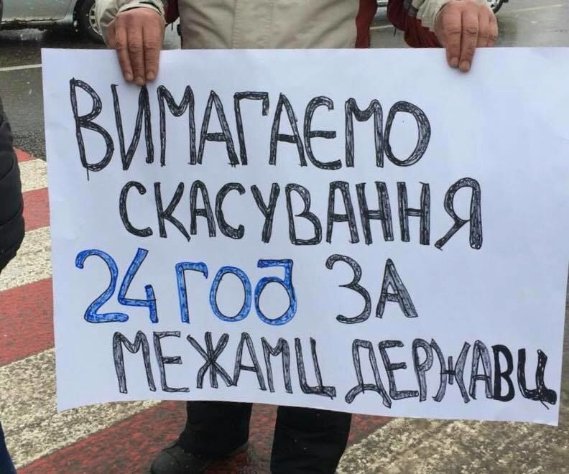 ВИМАГАЄМО
СКАСУВАННЯ
24 ГОД ЗА
МЕЖАМИ ДЕРЖАВИ